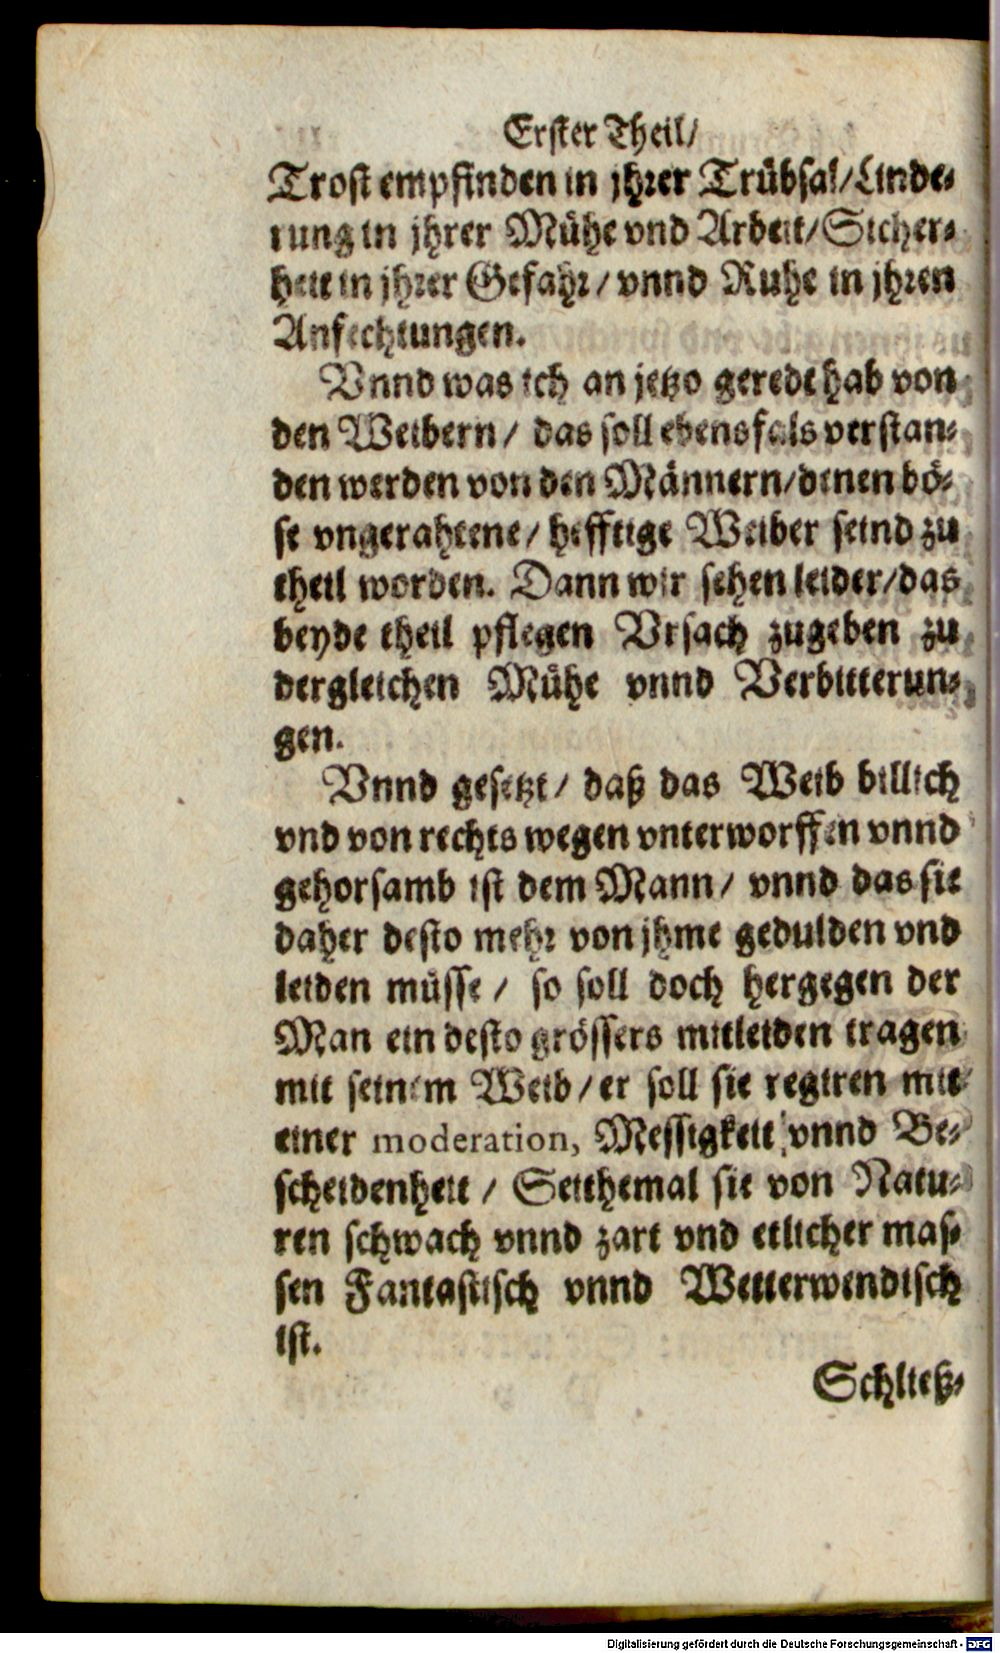 Erster Theil/
Trost empfinden in jhrer Trübsal/Linde-
rung in jhrer Mühe vnd Arbeit/Sicher-
heit in jhrer Gefahr/ vnnd Ruhe in jhren
Anfechtungen.
Vnnd was ich an jetzo geredt hab von
den Weibern/ das soll ebensfals verstan-
den werden von den Männern/denen bö-
se vngerahtene/ hefftige Weiber seind zu
theil worden. Dann wir sehen leider/das
beyde theil pflegen Vrsach zugeben zu
dergleichen Mühe vnnd Verbitterun-
gen.
Vnnd gesetzt/ daß das Weib billich
vnd von rechts wegen vnterworffen vnnd
gehorsamb ist dem Mann/ vnnd das sie
daher desto mehr von jhme gedulden vnd
leiden müsse/ so soll doch hergegen der
Man ein desto grössers mitleiden tragen
mit seinem Weib/er soll sie regiren mit
einer moderation, Messigkeit vnnd Be-
scheidenheit/ Seithemal sie von Natu-
ren schwach vnnd zart vnd etlicher mas-
sen Fantastisch vnnd Wetterwendisch
ist.
Schließ-
Digitalisierung gefördert durch die Deutsche Forschungsgemeinschaft - DFG